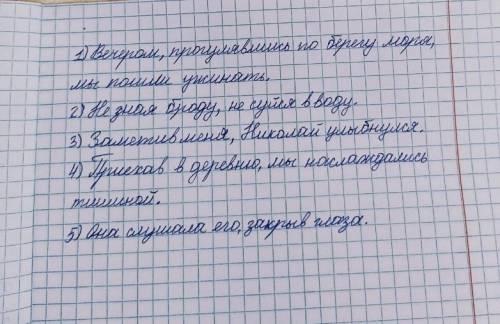 1) Вечером, прогулявшись по берегу моря,
мы пошли ужинать.
2) Не зная броду, не суйся в воду.
3) Заметив меня, Николай улыбнулся.
4) Приехав в деревню, мы наслаждались
тишиной.
5) Она слушала его, закрыв глаза.